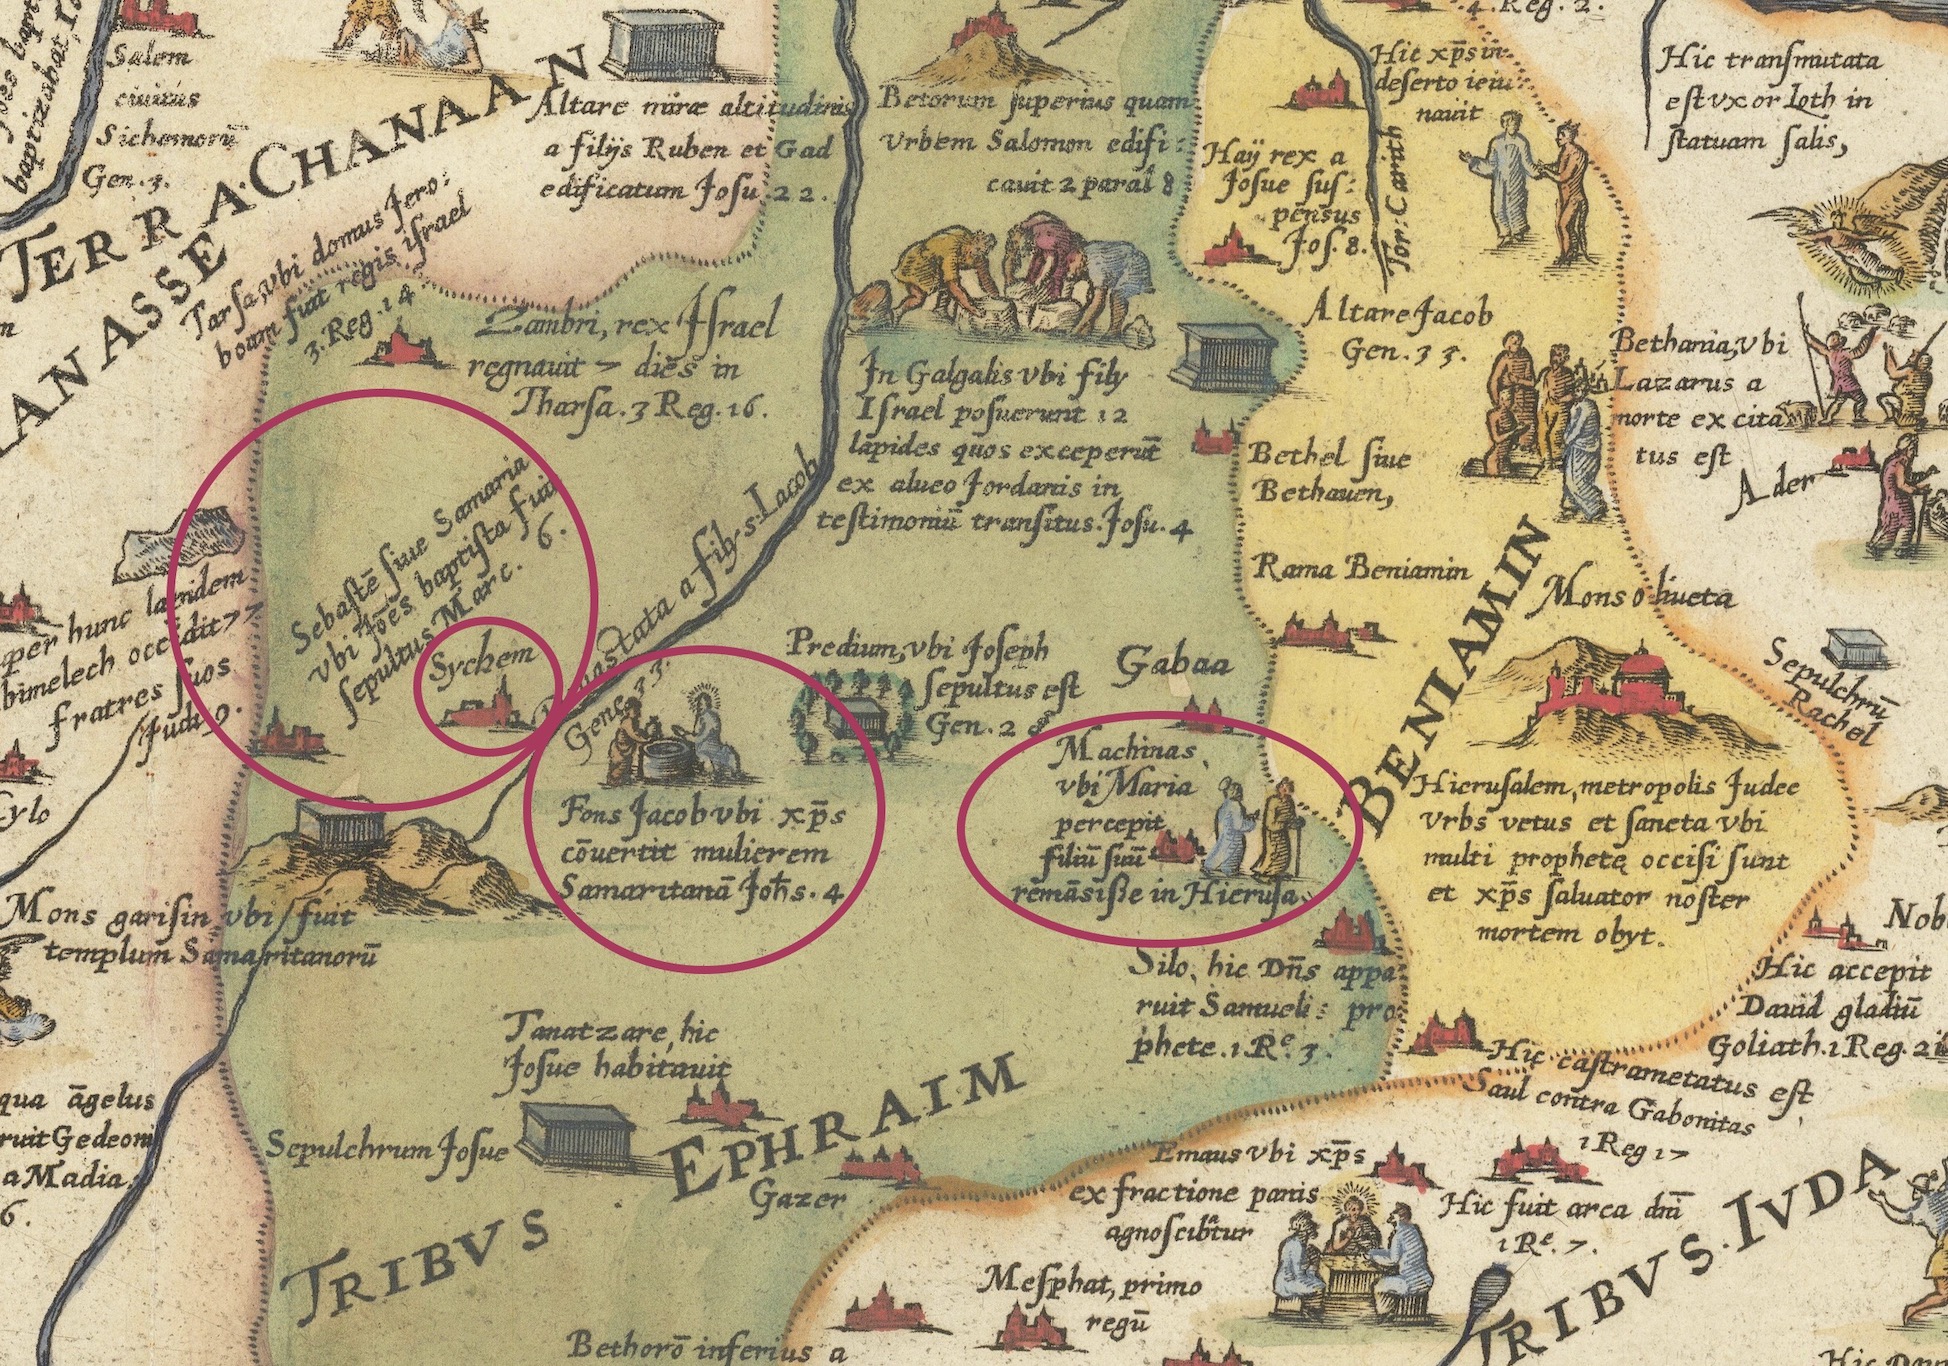 Salem
ciuitas
Sichemorū
Gen. 3.
TERRA CHANAAN
Altare miræ altitudinis
a filijs Ruben et Gad
edificatum Josu. 22.
Betorum superius quam
Vrbem Salomon edifi:
cauit 2 paral 8
4. Reg. 2.
Hic xp̄s in
deserto ieiu:
nauit
Haij rex a
Josue sus:
pēnsus
Jos. 8.
Tor: Carith
Hic transmutata
est vxor Loth in
statuam salis,
Tarsa, vbi domus Jero:
boam fuit regis israel
3. Reg. 14
Zambri, rex Jsrael
regnauit 7 diēs in
Tharsa. 3 Reg. 16.
Jn Galgalis vbi filij
Jsrael posuerunt 12
lāpides quos exceperūt
ex alueo Jordanis in
testimoniū transitus. Josu. 4
Altare Jacob
Gen. 33.
Bethania, vbi
Lazarus a
morte excita
tus est
Bethel siue
Bethauen,
Ader
Rama Beniamin
BENIAMIN
Mons oliueta
Sepulchrū
Rachel
Sebastē siue Samaria
vbi Joēs baptista fuit
sepultus Marc. 6.
Sychem
vastata a filijs Jacob
Gene. 33.
per hunc lapidem
bimelech occidit 77
fratres suos
Judi 9.
Sylo
Fons Jacob vbi xp̄s
cōuertit mulierem
Samaritanā Joh̄s. 4
Predium, vbi Joseph
sepultus est
Gen. 28
Gabaa
Machinas
vbi Maria
percepit
filiū suū
remāsisse in Hierusa.
Hierusalem, metropolis Judee
Vrbs vetus et sancta vbi
multi prophetę occisi sunt
et xp̄s saluator noster
mortem obyt.
Mons garisin vbi fuit
templum Samaritanorū
Silo, hic Dn̄s appa:
ruit Samueli: pro
phete. 1. Re. 3.
Nob
Hic accepit
Dauid gladiū
Goliath. 1 Reg. 21
Tanatzare, hic
Josue habitauit
Sepulchrum Josue
TRIBVS EPHRAIM
Gazer
Hic castrametatus est
Saul contra Gabonitas
1 Reg 17
qua āgelus
ruit Gedeoni
a Madia.
6.
Emaus vbi xp̄s
ex fractione panis
agnoscibtur
Hic fuit arca dn̄i
1 Re. 7.
TRIBVS. IVDA
Mesphat, primo
regū
Bethorō inferius a